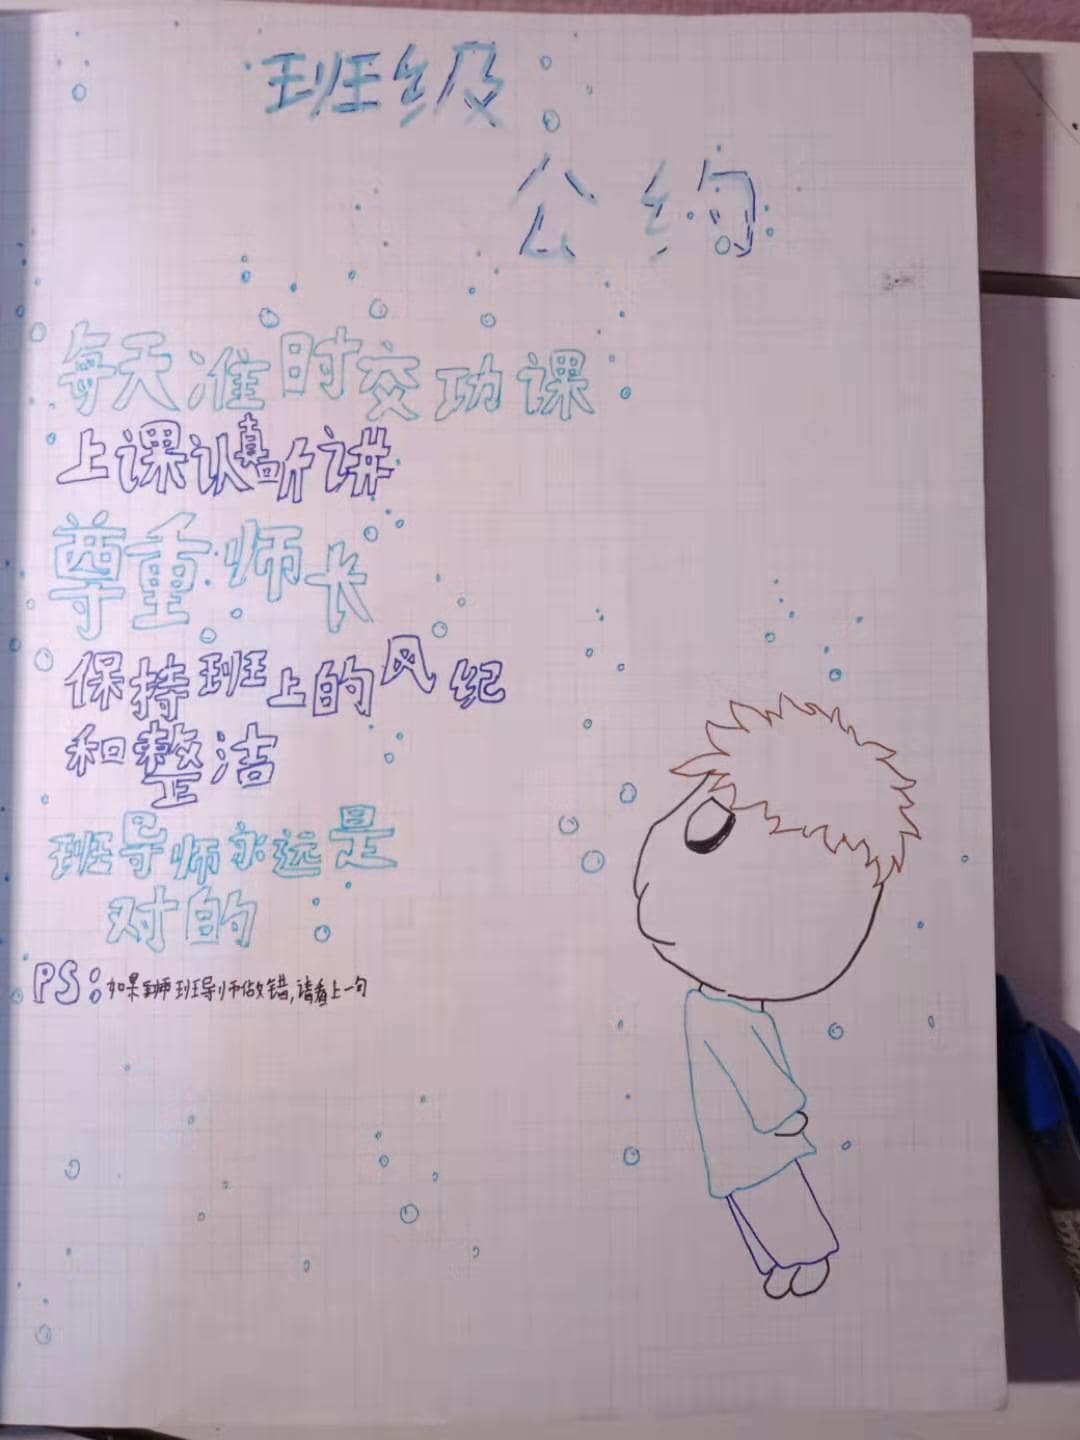 班级
公约
每天准时交功课
上课认真听讲
尊重师长
保持班上的风纪
和整洁
班导师永远是
对的
PS:如果班导师做错,请看上一句